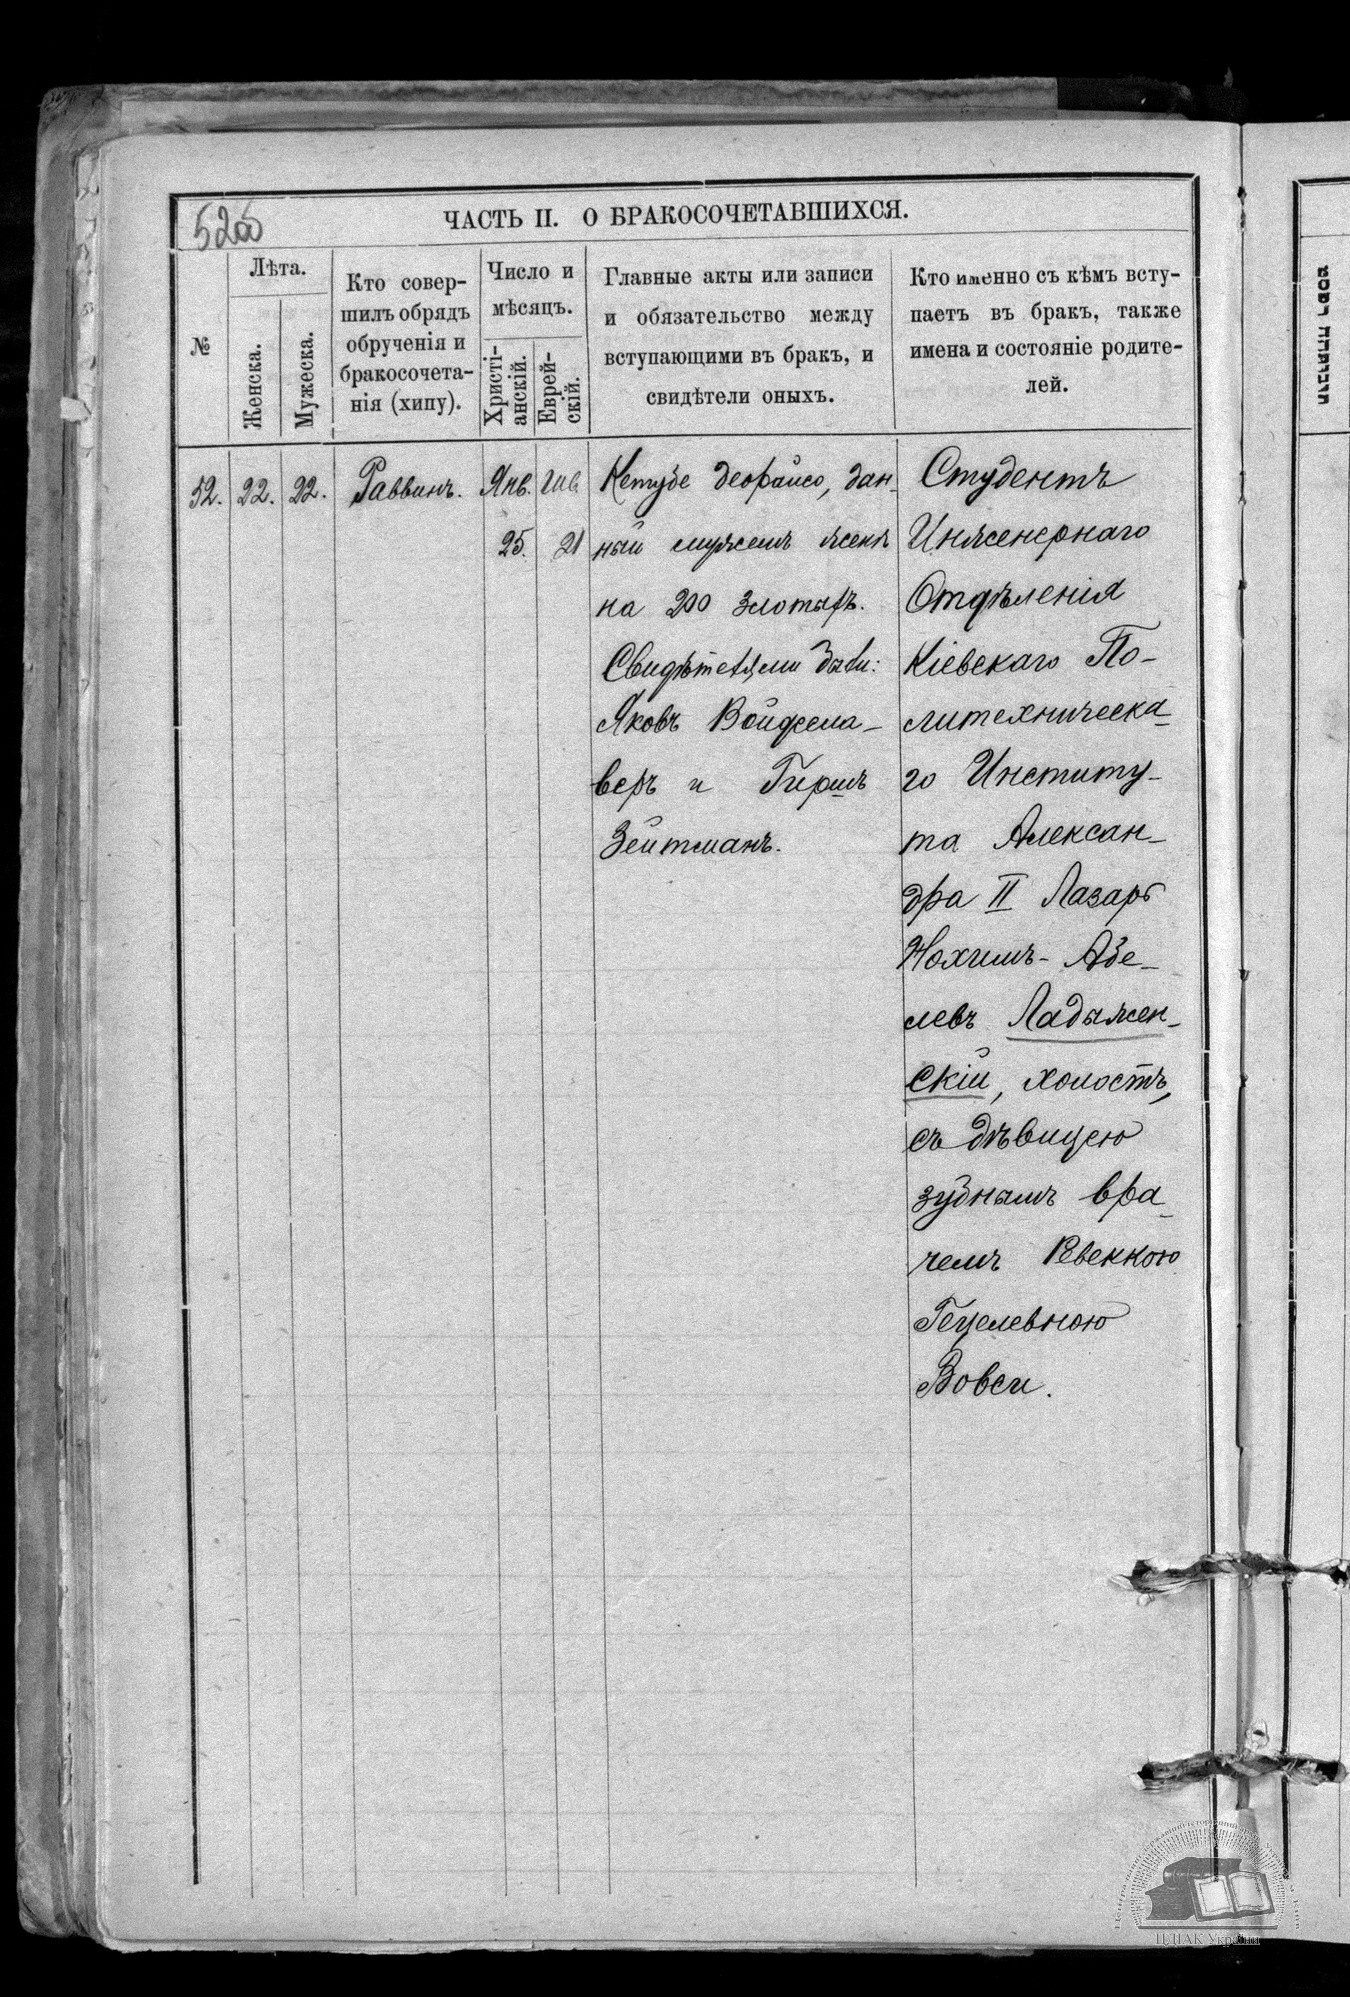 ЧАСТЬ II. О БРАКОСОЧЕТАВШИХСЯ.
№
Лѣта.
Женска.
Мужеска.
Кто совер-
шилъ обрядъ
обрученія и
бракосочета-
нія (хипу).
Число и
мѣсяцъ.
Христі-
анскій.
Еврей-
скій.
Главные акты или записи
и обязательство между
вступающими въ бракъ, и
свидѣтели оныхъ.
Кто именно съ кѣмъ всту-
паетъ въ бракъ, также
имена и состояніе родите-
лей.
52.
22.
22.
Раввинъ.
Янв.
25.
21
Кетубе деорайсо, дан-
ный мужемъ женѣ
на 200 злотыхъ.
Свидѣтелями были:
Яковъ Войдсла-
веръ и Гиршъ
Зейтманъ.
Студентъ
Инженернаго
Отдѣленія
Кіевскаго По-
литехническа-
го Институ-
та Алексан-
дра II Лазарь
Нохимъ-Абе-
левъ Ладыжен-
скій, холостъ,
съ дѣвицею
зубнымъ вра-
чемъ Ревеккою
Гецелевною
Вовси.
ЦДІАК України